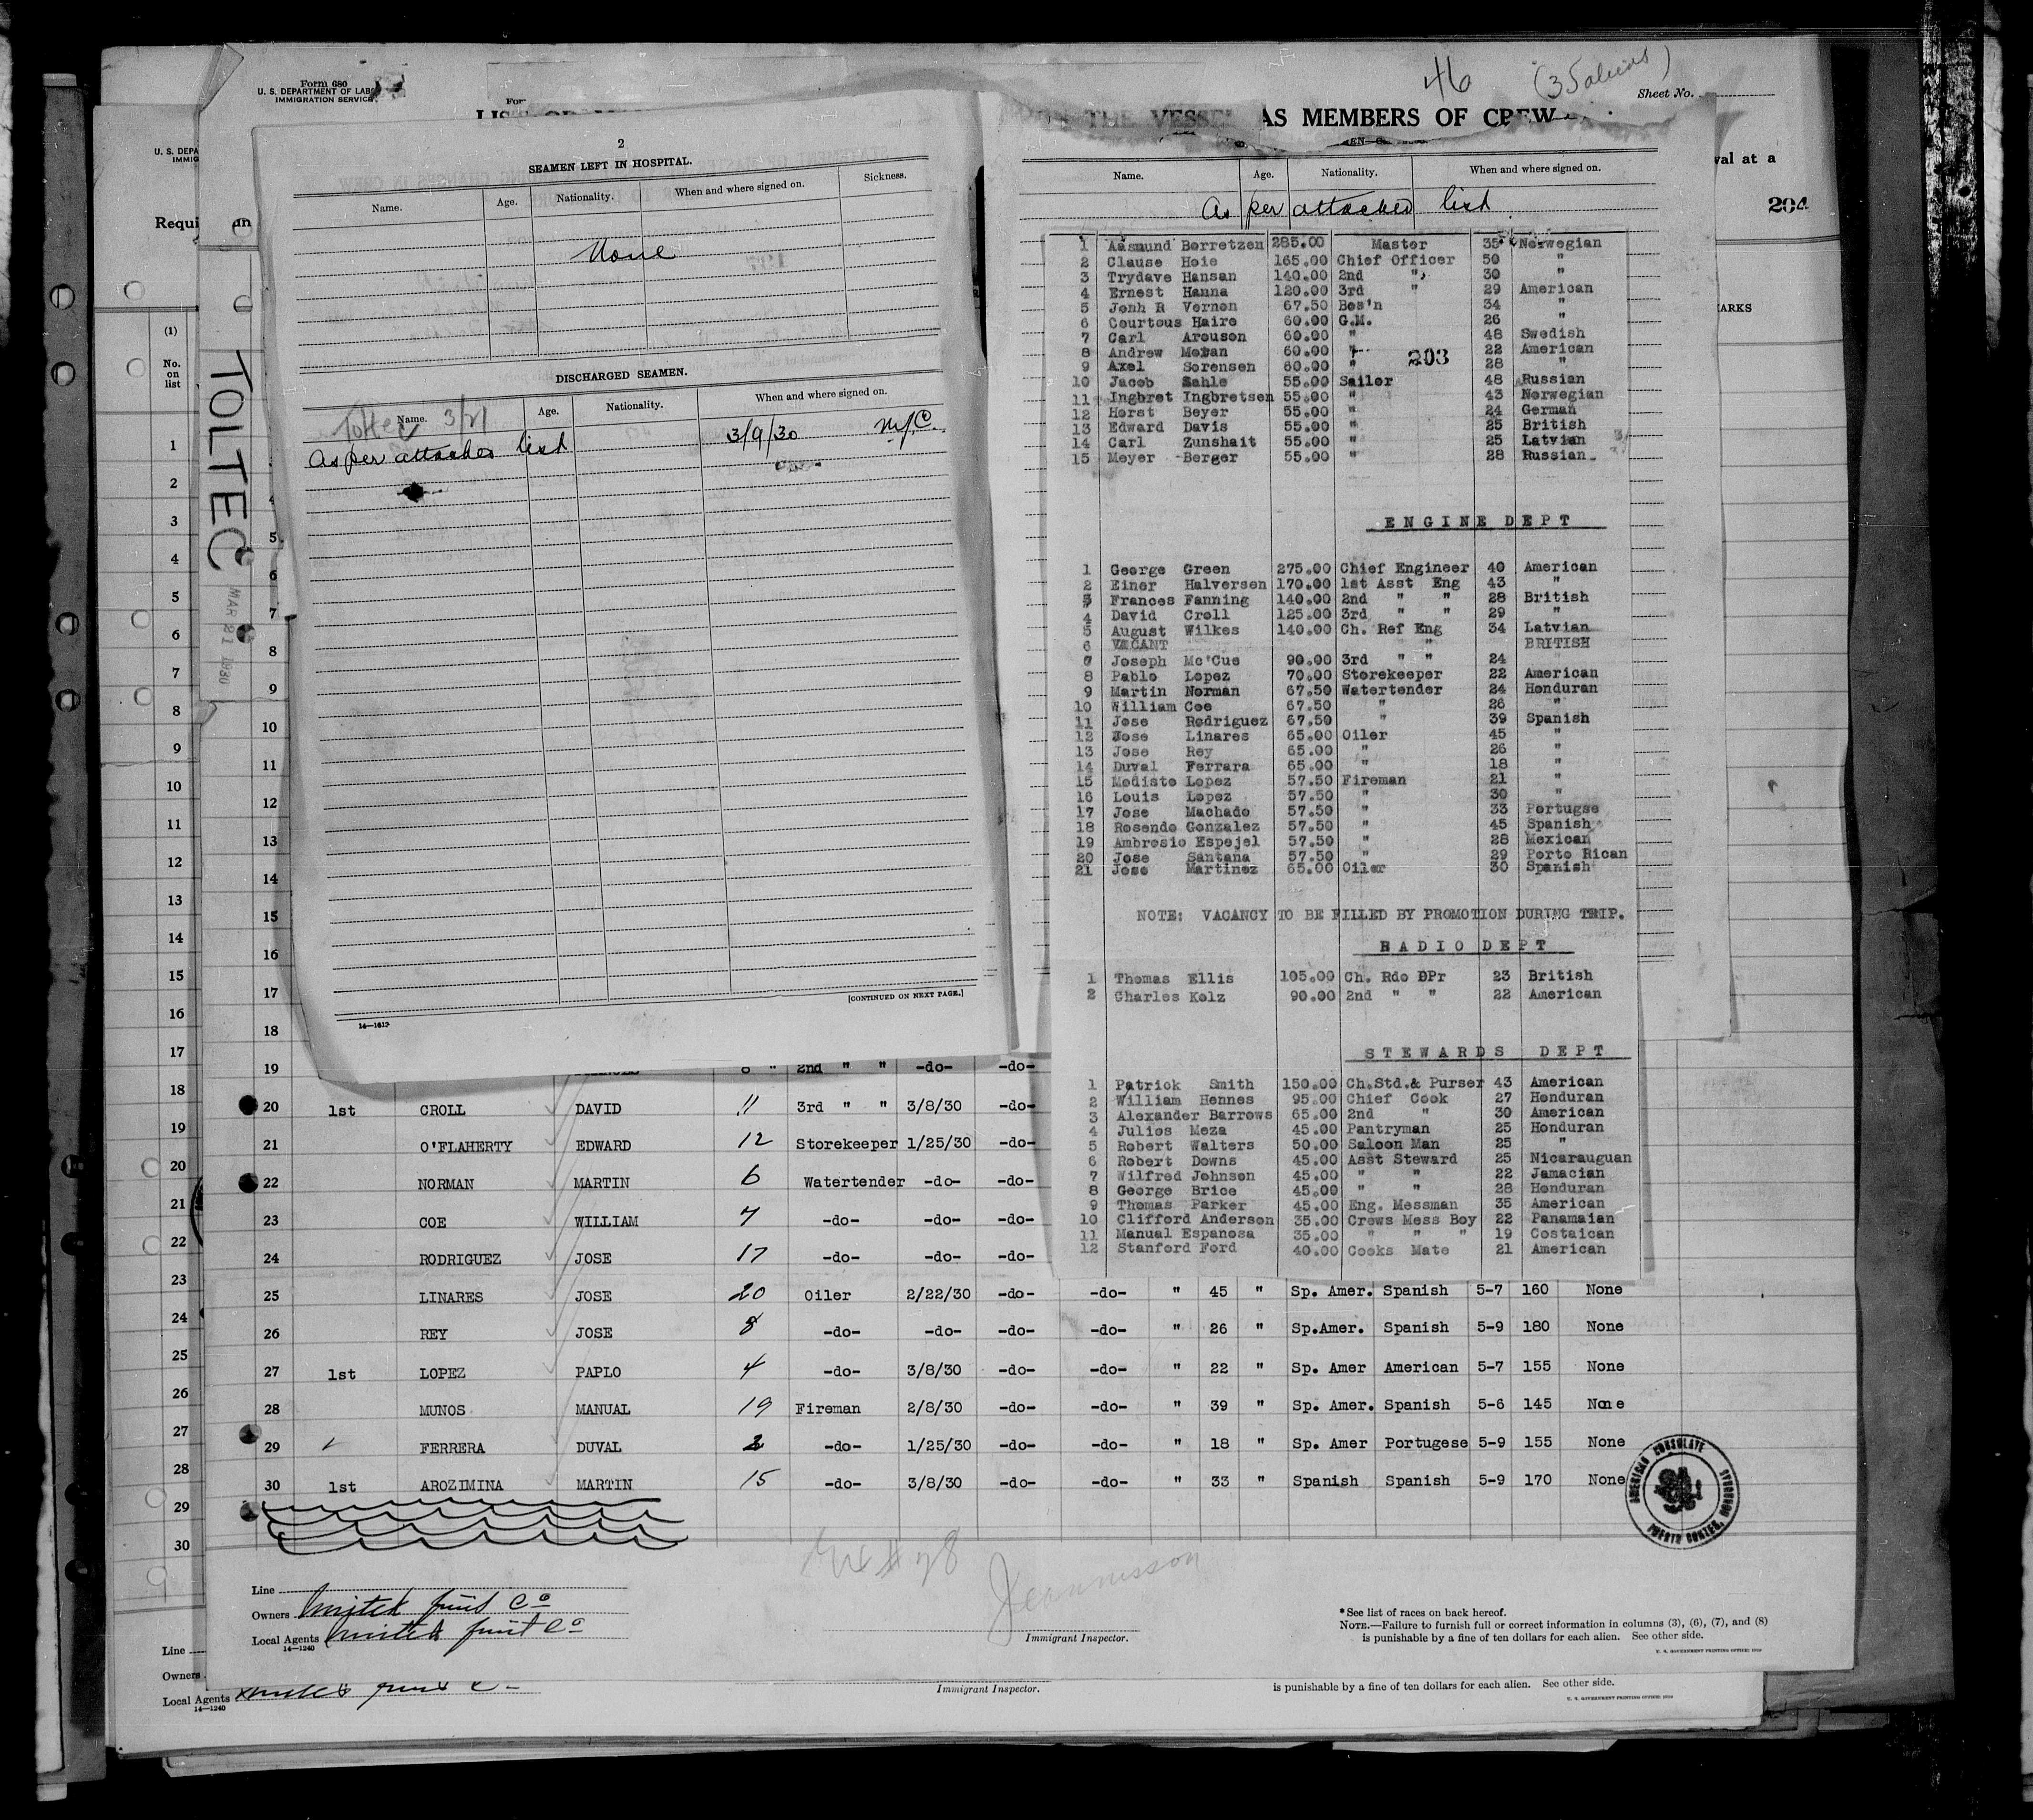 Form 680
U. S. DEPARTMENT OF LABO
IMMIGRATION SERVICE
46
(35 aliens)
Sheet No.
THE VESSEL AS MEMBERS OF CREW
U. S. DEPA
IMMIG
val at a
204
Requi
ARKS
(1)
No.
on
list
TOLTEC
MAR 21 1930
2
SEAMEN LEFT IN HOSPITAL.
Name. Age. Nationality. When and where signed on. Sickness.
None
DISCHARGED SEAMEN.
Name. Age. Nationality. When and where signed on.
Toltec 3/21
As per attached list 3/9/30 N.Y.C.
[CONTINUED ON NEXT PAGE.]
Name. Age. Nationality. When and where signed on.
As per attached list.
1 Aasmund Borretzen 285.00 Master 35 Norwegian
2 Clause Hoie 165.00 Chief Officer 50 "
3 Trydave Hansan 140.00 2nd " 30 "
4 Ernest Hanna 120.00 3rd " 29 American
5 Jonh R Vernon 67.50 Bos'n 34 "
6 Courtous Haire 60.00 G.M. 26 "
7 Carl Arouson 60.00 " 48 Swedish
8 Andrew Moran 60.00 " 22 American
203
9 Axel Sorensen 60.00 " 28 "
10 Jacob Sahle 55.00 Sailor 48 Russian
11 Ingbret Ingbretsen 55.00 " 43 Norwegian
12 Horst Beyer 55.00 " 24 German
13 Edward Davis 55.00 " 25 British
14 Carl Zunshait 55.00 " 25 Latvian
15 Meyer Berger 55.00 " 28 Russian
ENGINE DEPT
1 George Green 275.00 Chief Engineer 40 American
2 Einer Halversen 170.00 1st Asst Eng 43 "
3 Frances Fanning 140.00 2nd " " 28 British
4 David Croll 125.00 3rd " " 29 "
5 August Wilkes 140.00 Ch. Ref Eng 34 Latvian
6 VACANT " BRITISH
7 Joseph Mc'Cue 90.00 3rd " " 24 "
8 Pablo Lopez 70.00 Storekeeper 22 American
9 Martin Norman 67.50 Watertender 24 Honduran
10 William Coe 67.50 " 26 "
11 Jose Rodriguez 67.50 " 39 Spanish
12 Jose Linares 65.00 Oiler 45 "
13 Jose Rey 65.00 " 26 "
14 Duval Ferrara 65.00 " 18 "
15 Modisto Lopez 57.50 Fireman 21 "
16 Louis Lopez 57.50 " 30 "
17 Jose Machado 57.50 " 33 Portugse
18 Rosendo Gonzalez 57.50 " 45 Spanish
19 Ambrosio Espejel 57.50 " 28 Mexican
20 Jose Santana 57.50 " 29 Porto Rican
21 Jose Martinez 65.00 Oiler 30 Spanish
NOTE: VACANCY TO BE FILLED BY PROMOTION DURING TRIP.
RADIO DEPT
1 Thomas Ellis 105.00 Ch. Rdo OPr 23 British
2 Charles Kolz 90.00 2nd " " 22 American
STEWARDS DEPT
1 Patrick Smith 150.00 Ch.Std.& Purser 43 American
2 William Hennes 95.00 Chief Cook 27 Honduran
3 Alexander Barrows 65.00 2nd " 30 American
4 Julios Meza 45.00 Pantryman 25 Honduran
5 Robert Walters 50.00 Saloon Man 25 "
6 Robert Downs 45.00 Asst Steward 25 Nicarauguan
7 Wilfred Johnson 45.00 " " 22 Jamacian
8 George Brice 45.00 " " 28 Honduran
9 Thomas Parker 45.00 Eng. Messman 35 American
10 Clifford Anderson 35.00 Crews Mess Boy 22 Panamaian
11 Manual Espanosa 35.00 " " " 19 Costaican
12 Stanford Ford 40.00 Cooks Mate 21 American
19 2nd " " -do- -do-
20 1st CROLL DAVID 11 3rd " " 3/8/30 -do-
21 O'FLAHERTY EDWARD 12 Storekeeper 1/25/30 -do-
22 NORMAN MARTIN 6 Watertender -do- -do-
23 COE WILLIAM 7 -do- -do- -do-
24 RODRIGUEZ JOSE 17 -do- -do- -do-
25 LINARES JOSE 20 Oiler 2/22/30 -do- -do- " 45 " Sp. Amer. Spanish 5-7 160 None
26 REY JOSE 8 -do- -do- -do- -do- " 26 " Sp.Amer. Spanish 5-9 180 None
27 1st LOPEZ PAPLO 4 -do- 3/8/30 -do- -do- " 22 " Sp. Amer American 5-7 155 None
28 MUNOS MANUAL 19 Fireman 2/8/30 -do- -do- " 39 " Sp. Amer. Spanish 5-6 145 None
29 FERRERA DUVAL 2 -do- 1/25/30 -do- -do- " 18 " Sp. Amer Portugese 5-9 155 None
30 1st AROZIMINA MARTIN 15 -do- 3/8/30 -do- -do- " 33 " Spanish Spanish 5-9 170 None
AMERICAN CONSULATE
PUERTO CORTES, HONDURAS
Line
Owners United Fruit Co
Local Agents United Fruit Co
14-1240
Immigrant Inspector.
*See list of races on back hereof.
NOTE.—Failure to furnish full or correct information in columns (3), (6), (7), and (8)
is punishable by a fine of ten dollars for each alien. See other side.
U. S. GOVERNMENT PRINTING OFFICE
Line
Owners
Local Agents
14-1240
Immigrant Inspector.
is punishable by a fine of ten dollars for each alien. See other side.
U. S. GOVERNMENT PRINTING OFFICE